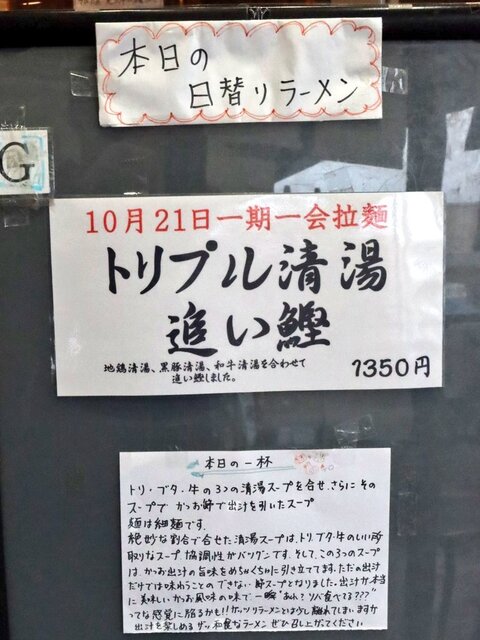 本日の
日替りラーメン
G
10月21日一期一会拉麺
トリプル清湯
追い鰹
地鶏清湯、黒豚清湯、和牛清湯を合わせて
追い鰹しました。
1350円
本日の一杯
トリ・ブタ・牛の3つの清湯スープを合せ、さらにその
スープで かつお節で出汁を引いたスープ
麺は細麺です。
絶妙な割合で合せた清湯スープは、トリ、ブタ、牛のいい所
取りなスープ 協調性がバツグンです。そして、この3つのスープ
は かつお出汁の旨味をめちゃくちゃに引き立てます。ただの出汁
だけでは味わうことの できない 節スープとなりました。出汁が本当
に美味しい かつお風味の味で 一瞬“あれ？ソバ食べてる???”
ってな感覚に陥るかも!! ガッツリラーメンとは少し離れてしまいますが
出汁を楽しめる ザッ和食なラーメン ぜひ召し上がってください